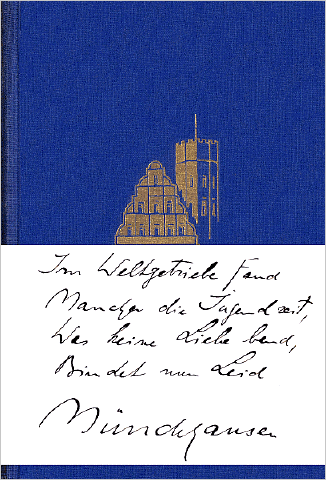 Im Weltgetriebe fand
Mancher die Jugendzeit,
Was keine Liebe band,
Bindet nun Leid
Münchhausen